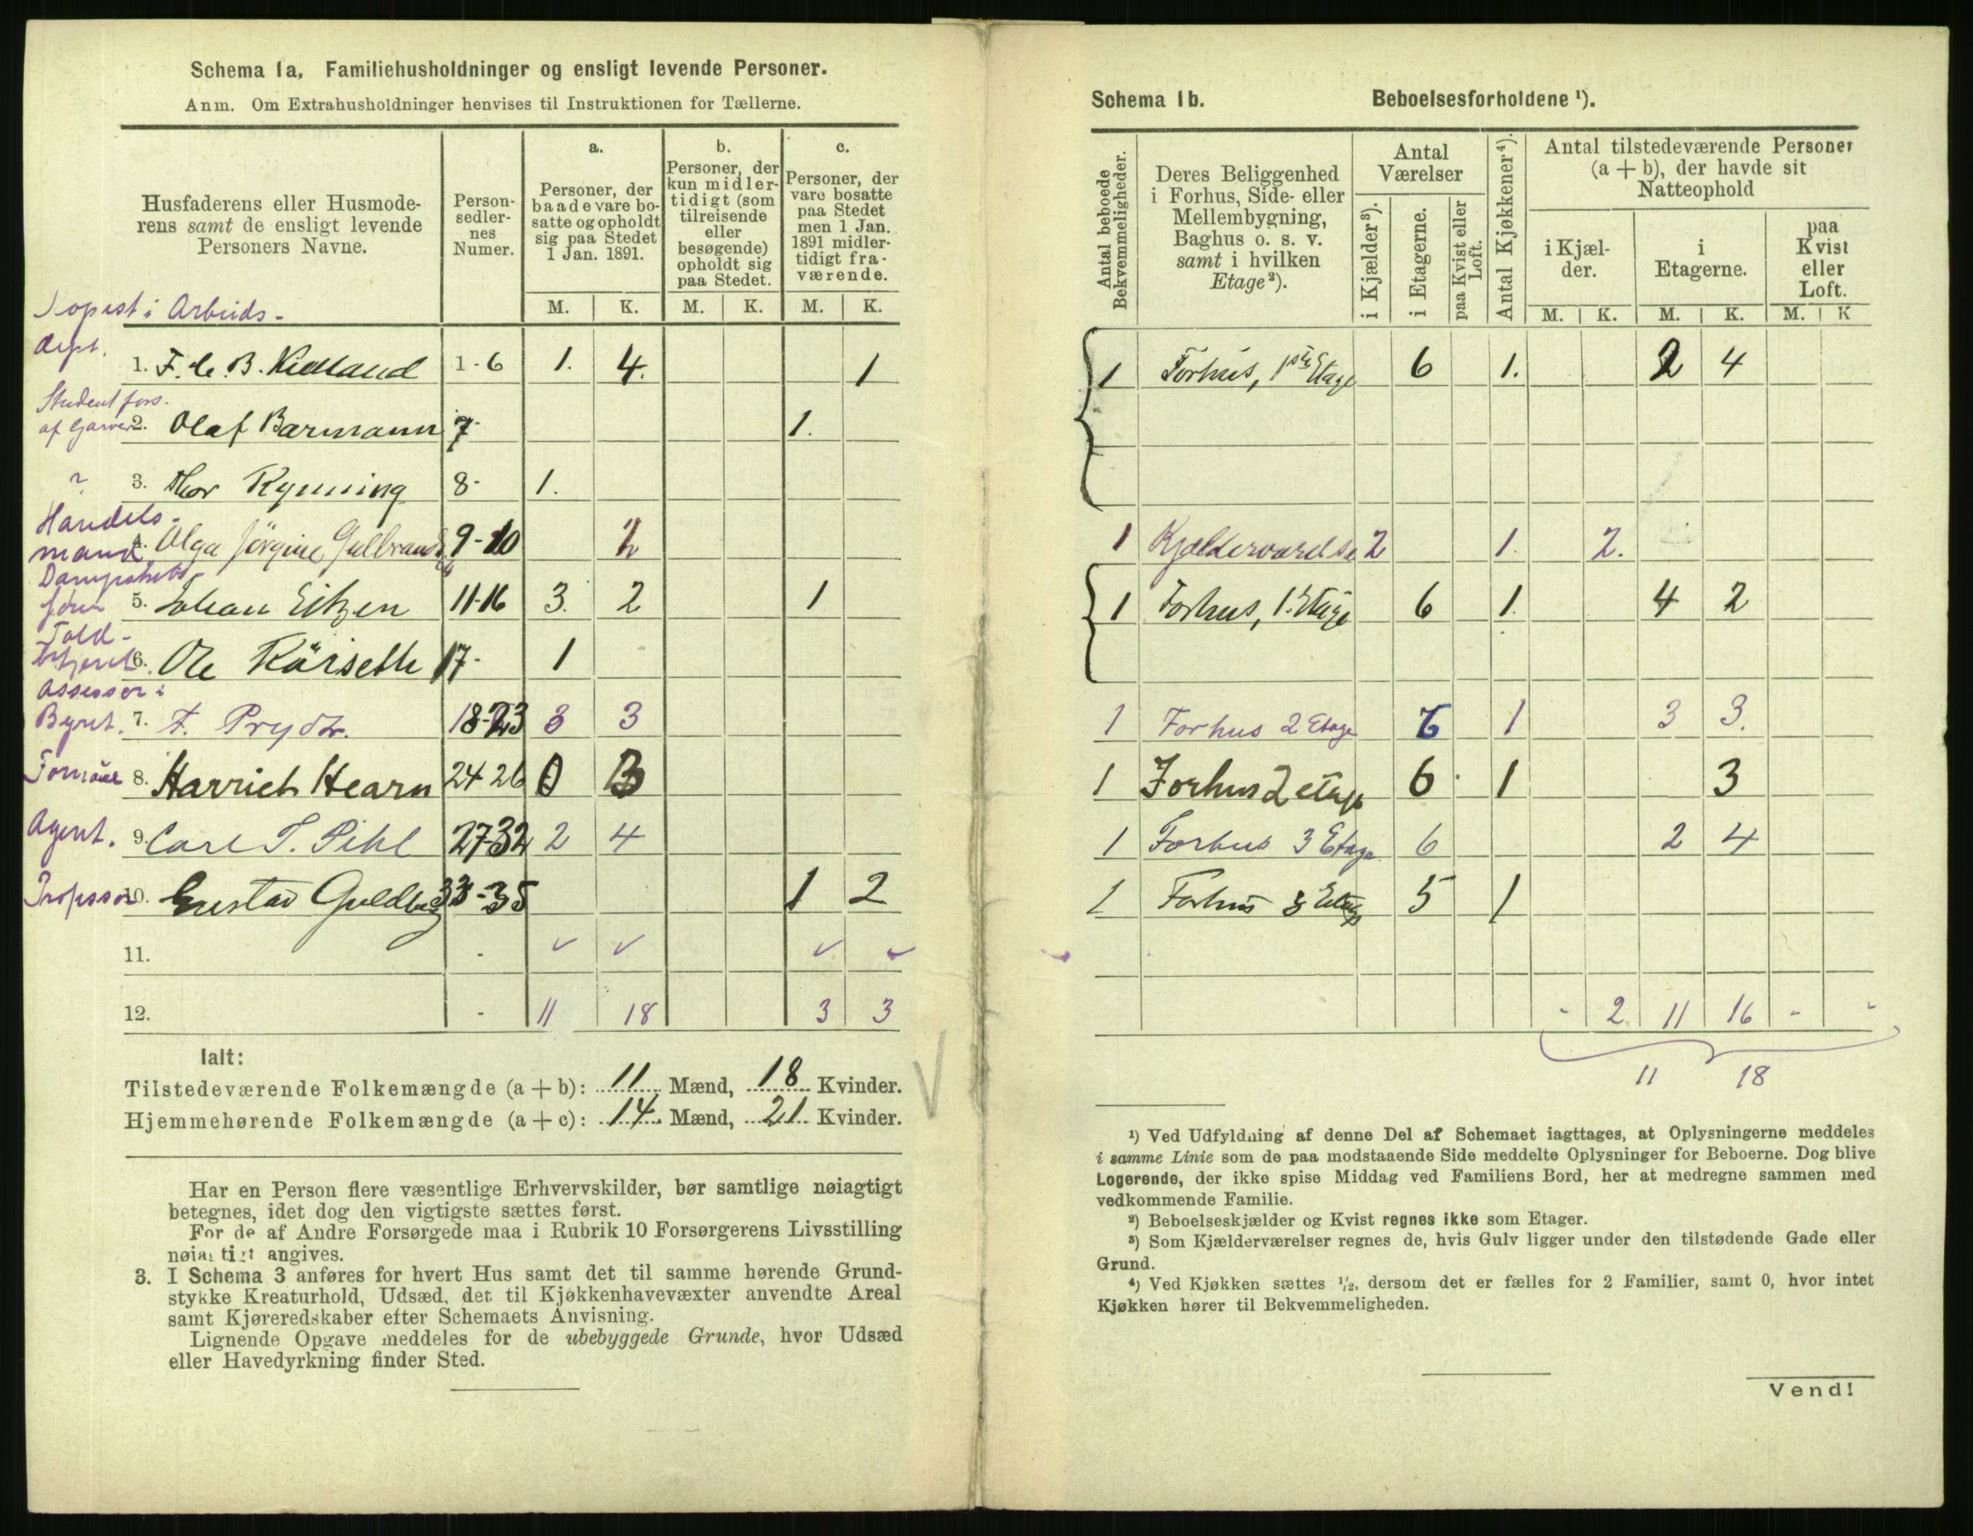 Schema 1a. Familiehusholdninger og ensligt levende Personer.
Anm. Om Extrahusholdninger henvises til Instruktionen for Tællerne.
Husfaderens eller Husmoderens samt de ensligt levende Personers Navne.
Personsedlernes Numer.
a. Personer, der baade vare bosatte og opholdt sig paa Stedet 1 Jan. 1891.
b. Personer, der kun midlertidigt (som tilreisende eller besøgende) opholdt sig paa Stedet.
c. Personer, der vare bosatte paa Stedet men 1 Jan. 1891 midlertidigt fraværende.
M. K. M. K. M. K.
i Arbeids-
dept. 1. F. C. B. Kielland 1-6 1. 4. 1
Student fors. af Garver 2. Olaf Barmann 7- 1.
? 3. Thor Rynning 8- 1.
Handelsmand 4. Olga Jørgine 9-10 2
5. Johan Eitzen 11-16 3. 2 1
Toldbetjent 6. Ole Rörseth 17- 1
Assessor i Byret. 7. F. Prydz. 18-23 3 3
8. Harriet Hearn 24 26 0 3
Agent. 9. Carl T. Pihl 27-32 2 4
Professor 10. Gustav Guldberg 33-35 1 2
11. - ✓ ✓ ✓ ✓
12. - 11 18 3 3
Ialt:
Tilstedeværende Folkemængde (a + b): 11 Mænd, 18 Kvinder.
Hjemmehørende Folkemængde (a + c): 14 Mænd, 21 Kvinder.
Har en Person flere væsentlige Erhvervskilder, bør samtlige nøiagtigt
betegnes, idet dog den vigtigste sættes først.
For de af Andre Forsørgede maa i Rubrik 10 Forsørgerens Livsstilling
nøiagtigt angives.
3. I Schema 3 anføres for hvert Hus samt det til samme hørende Grund-
stykke Kreaturhold, Udsæd, det til Kjøkkenhavevæxter anvendte Areal
samt Kjøreredskaber efter Schemaets Anvisning.
Lignende Opgave meddeles for de ubebyggede Grunde, hvor Udsæd
eller Havedyrkning finder Sted.
Schema 1b. Beboelsesforholdene ¹).
Antal beboede Bekvemmeligheder.
Deres Beliggenhed i Forhus, Side- eller Mellembygning, Baghus o. s. v. samt i hvilken Etage ²).
Antal Værelser
i Kjælder ³).
i Etagerne.
paa Kvist eller Loft.
Antal Kjøkkener ⁴).
Antal tilstedeværende Personer (a + b), der havde sit Natteophold
i Kjælder.
i Etagerne.
paa Kvist eller Loft.
M. K. M. K. M. K
1 Forhus, 1ste Etage 6 1. 2 4
1 Kjælderværelse 2 1. 2.
1 Forhus, 1. Etage 6 1. 4 2
1 Forhus 2 Etage 6 1 3 3.
1 Forhus 2 etage 6 1 3
1 Forhus 3 Etage 6 2 4
1 Forhus 3 Etage 5 1
- 2 11 16 - -
11 18
¹) Ved Udfyldning af denne Del af Schemaet iagttages, at Oplysningerne meddeles
i samme Linie som de paa modstaaende Side meddelte Oplysninger for Beboerne. Dog blive
Logerende, der ikke spise Middag ved Familiens Bord, her at medregne sammen med
vedkommende Familie.
²) Beboelseskjælder og Kvist regnes ikke som Etager.
³) Som Kjælderværelser regnes de, hvis Gulv ligger under den tilstødende Gade eller
Grund.
⁴) Ved Kjøkken sættes ½, dersom det er fælles for 2 Familier, samt 0, hvor intet
Kjøkken hører til Bekvemmeligheden.
Vend!